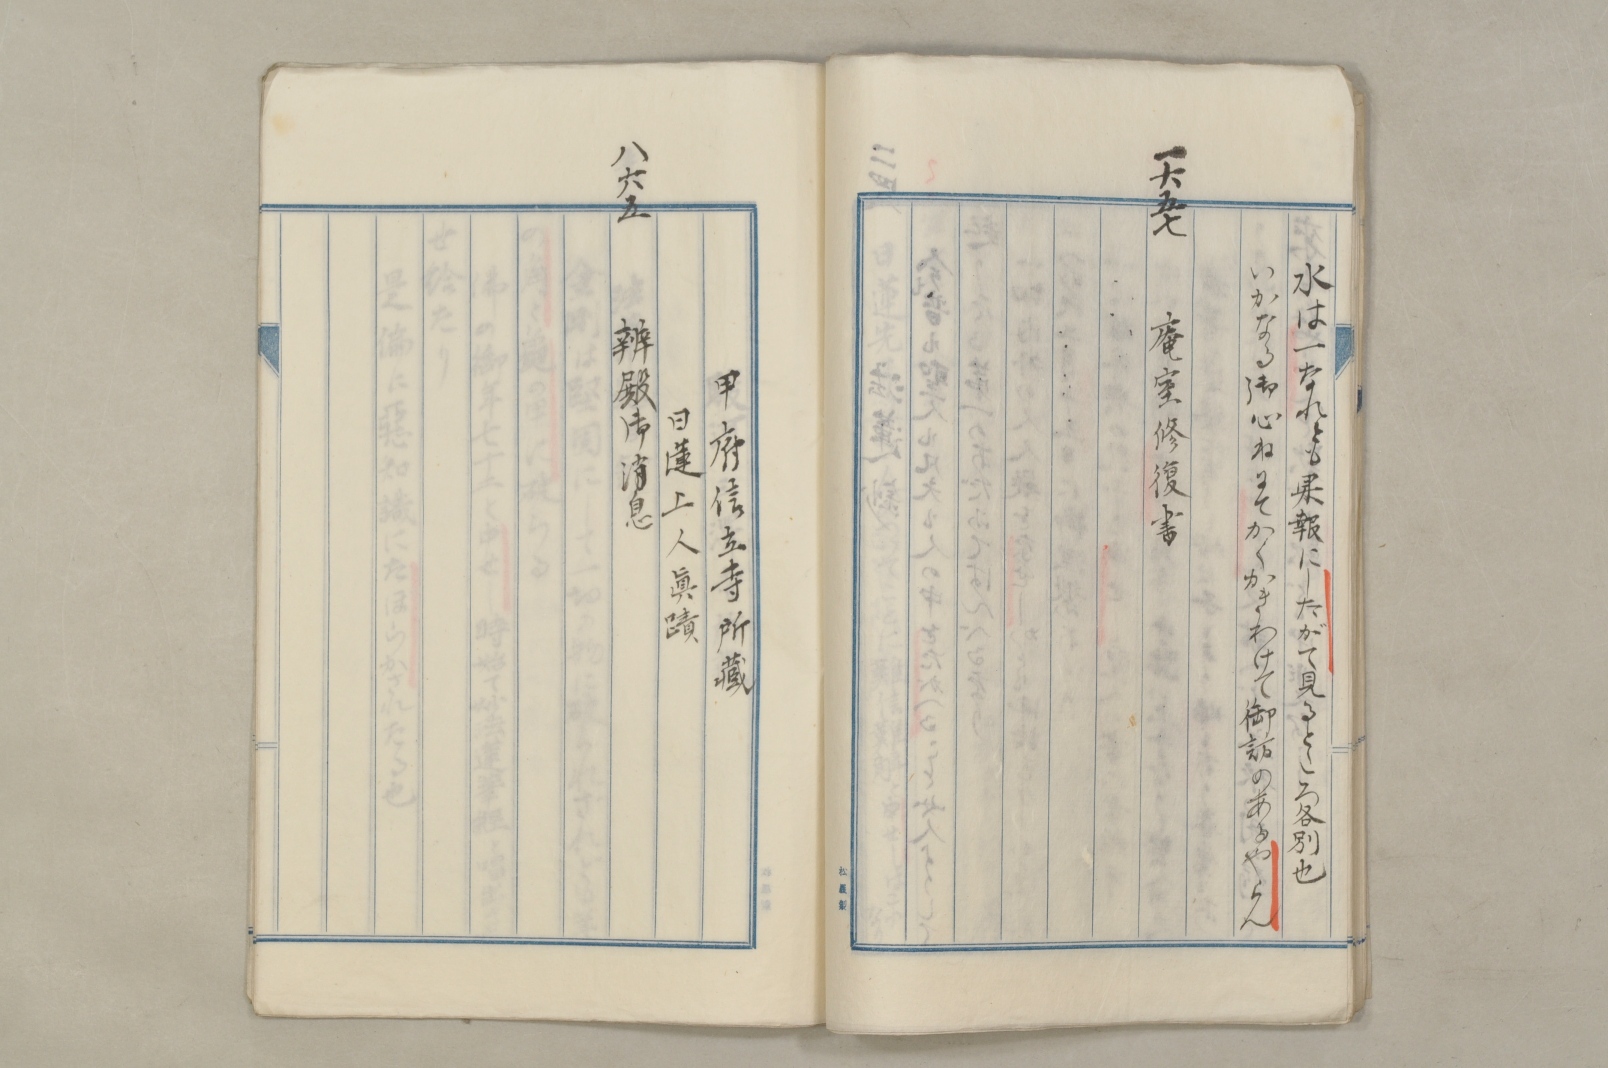 水は一なれとも果報にしたがて見るところ各別也
いかなる御心ねにてかくかきわけて御訪のあるやらん
一六五七
庵室修復書
松屋製
甲府信立寺所藏
日蓮上人眞蹟
八六五
辨殿御消息